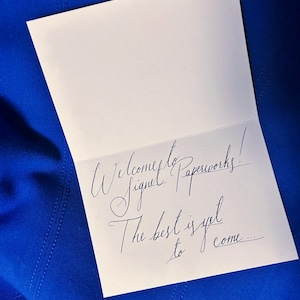 Welcome to
Signet Paperworks!
The best is yet
to come...